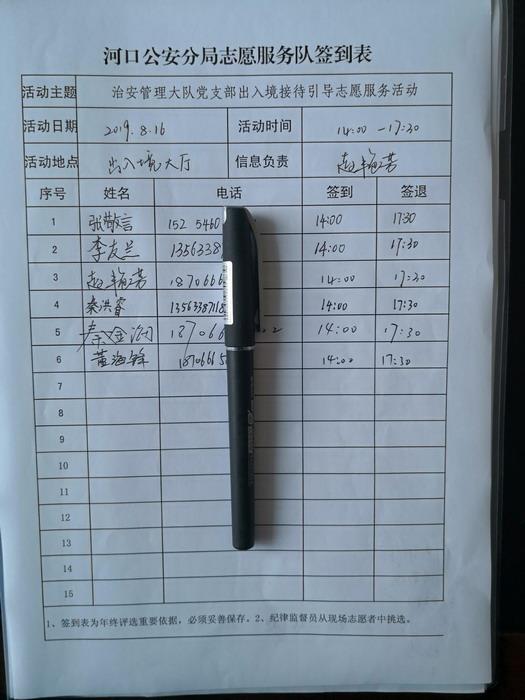 河口公安分局志愿服务队签到表
活动主题 治安管理大队党支部出入境接待引导志愿服务活动
活动日期 2019.8.16 活动时间 14:00-17:30
活动地点 出入境大厅 信息负责 赵艳芳
序号 姓名 电话 签到 签退
1 张敬言 152 5460 14:00 17:30
2 李友兰 1356338 14:00 17:30
3 赵艳芳 1870666 14:00 17:30
4 秦洪睿 13563387118 14:00 17:30
5 秦金河 187066 14:00 17:30
6 黄海锋 1870665 14:00 17:30
7
8
9
10
11
12
13
14
15
1、签到表为年终评选重要依据，必须妥善保存。2、纪律监督员从现场志愿者中挑选。